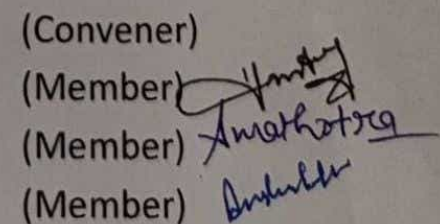 (Convener)
(Member)
(Member) Amarhotra
(Member)